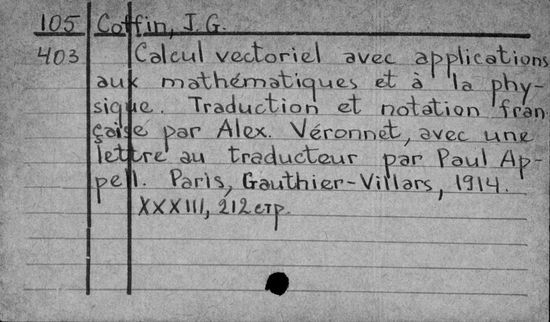 105 Coffin, J. G.
403 Calcul vectoriel avec applications
aux mathématiques et à la phy-
sique. Traduction et notation fran
çaise par Alex. Véronnet, avec une
lettre au traducteur par Paul Ap-
pell. Paris, Gauthier-Villars, 1914.
XXXIII, 212 стр.